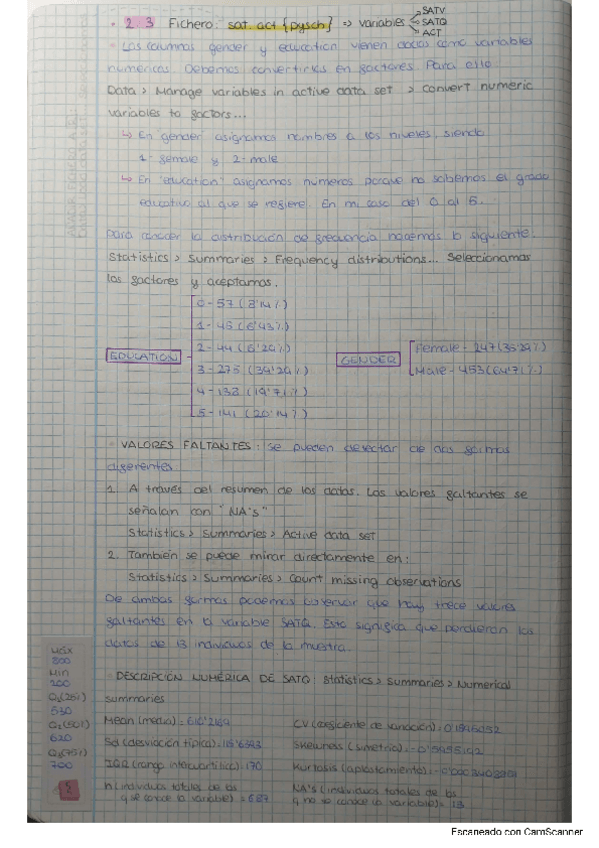 • 2.3 Fichero: sat.act {pysch} => variables SATV
SATQ
ACT
• Las columnas gender y education vienen dadas como variables
numéricas. Debemos convertirlas en factores. Para ello:
Data > Manage variables in active data set > Convert numeric
variables to factors...
↳ En gender asignamos nombres a los niveles, siendo
1- female y 2- male
↳ En "education" asignamos números porque no sabemos el grado
educativo al que se refiere. En mi caso del 0 al 5.
Para conocer la distribución de frecuencia hacemos lo siguiente:
Statistics > Summaries > Frequency distributions... Seleccionamos
los factores y aceptamos.
EDUCATION
0-57 (8'14%)
1-45 (6'43%)
2-44 (6'29%)
3-275 (39'29%)
4-138 (19'71%)
5-141 (20'14%)
GENDER
Female - 247 (35'29%)
Male - 453 (64'71%)
• VALORES FALTANTES: Se pueden detectar de dos formas
diferentes
1. A través del resumen de los datos. Los valores faltantes se
señalan con "NA's"
Statistics > Summaries > Active data set
2. También se puede mirar directamente en:
Statistics > Summaries > Count missing observations
De ambas formas podemos observar que hay trece valores
faltantes en la variable SATQ. Esto significa que perdieron los
datos de 13 individuos de la muestra.
• DESCRIPCIÓN NUMÉRICA DE SATQ: Statistics > Summaries > Numerical
summaries
Máx
800
Min
200
Q1(25%)
530
Q2(50%)
620
Q3(75%)
700
Mean (media): 610'2169
Sd (desviación típica): 115'6393
IQR (rango intercuartílico): 170
n (individuos totales de los
q se conoce la variable) = 687
CV (coeficiente de variación):
Skewness (simetría):
Kurtosis (aplastamiento):
NA's (individuos totales de los
q no se conoce la variable) = 13
Escaneado con CamScanner